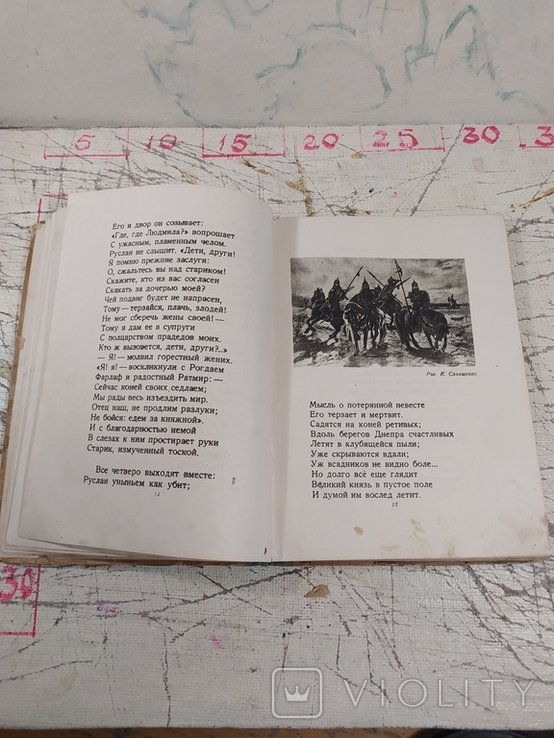 5 10 15 20 25 30 3
Его и двор он созывает:
«Где, где Людмила?» вопрошает
С ужасным, пламенным челом.
Руслан не слышит. «Дети, други!
Я помню прежние заслуги:
О, сжальтесь вы над стариком!
Скажите, кто из вас согласен
Скакать за дочерью моей?
Чей подвиг будет не напрасен,
Тому — терзайся, плачь, злодей!
Не мог сберечь жены своей! —
Тому я дам ее в супруги
С полцарством прадедов моих.
Кто ж вызовется, дети, други?..»
— Я! — молвил горестный жених.
«Я! я! — воскликнули с Рогдаем
Фарлаф и радостный Ратмир: —
Сейчас коней своих седлаем;
Мы рады весь изъездить мир.
Отец наш, не продлим разлуки;
Не бойся: едем за княжной».
И с благодарностью немой
В слезах к ним простирает руки
Старик, измученный тоской.
Все четверо выходят вместе:
Руслан уныньем как убит;
14
Рис. К. Савицкого.
Мысль о потерянной невесте
Его терзает и мертвит.
Садятся на коней ретивых;
Вдоль берегов Днепра счастливых
Летят в клубящейся пыли;
Уже скрываются вдали;
Уж всадников не видно боле...
Но долго всё еще глядит
Великий князь в пустое поле
И думой им вослед летит.
15
30
VIOLITY